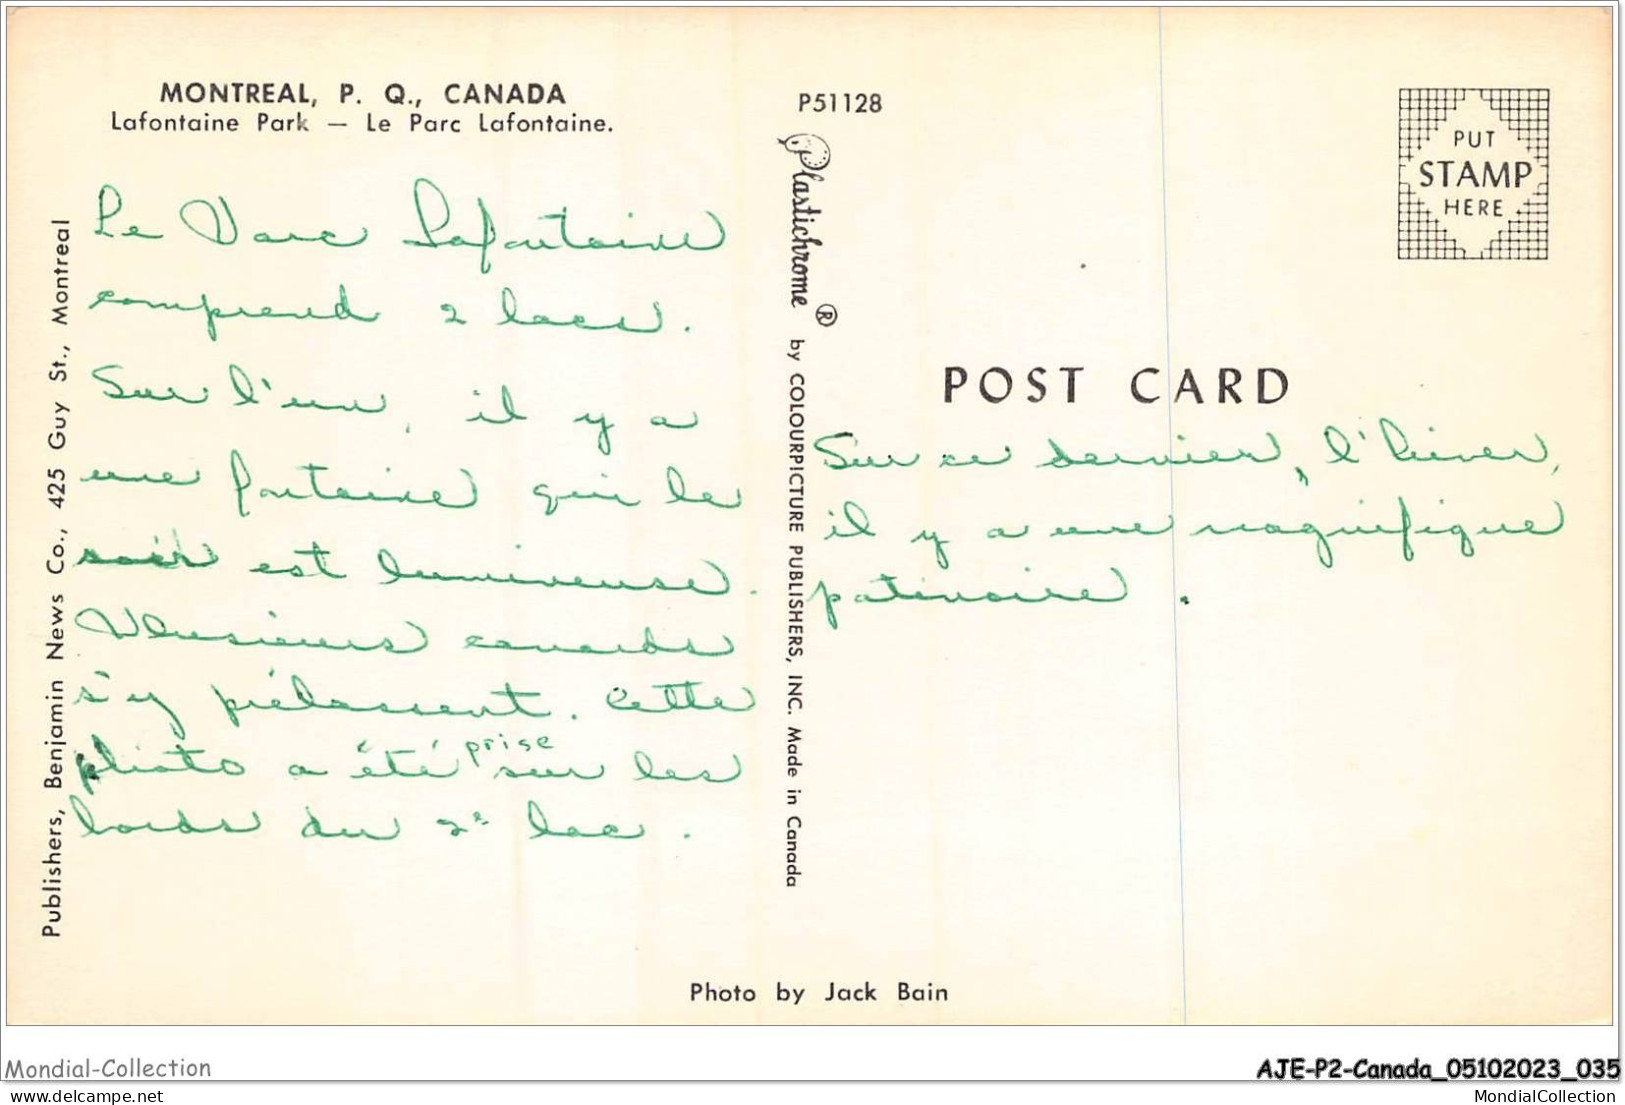 MONTREAL, P. Q., CANADA
Lafontaine Park — Le Parc Lafontaine.
Le Parc Lafontaine
comprend 2 lacs.
Sur l'un, il y a
une fontaine qui le
soir est lumineuse.
Plusieurs canards
s'y prélassent. Cette
photo a été prise sur les
bords du 2e lac.
Publishers, Benjamin News Co., 425 Guy St., Montreal
P51128
Plastichrome ® by COLOURPICTURE PUBLISHERS, INC. Made in Canada
PUT
STAMP
HERE
POST CARD
Sur ce dernier, l'hiver,
il y a une magnifique
patinoire.
Photo by Jack Bain
Mondial-Collection
AJE-P2-Canada_05102023_035
www.delcampe.net
MondialCollection